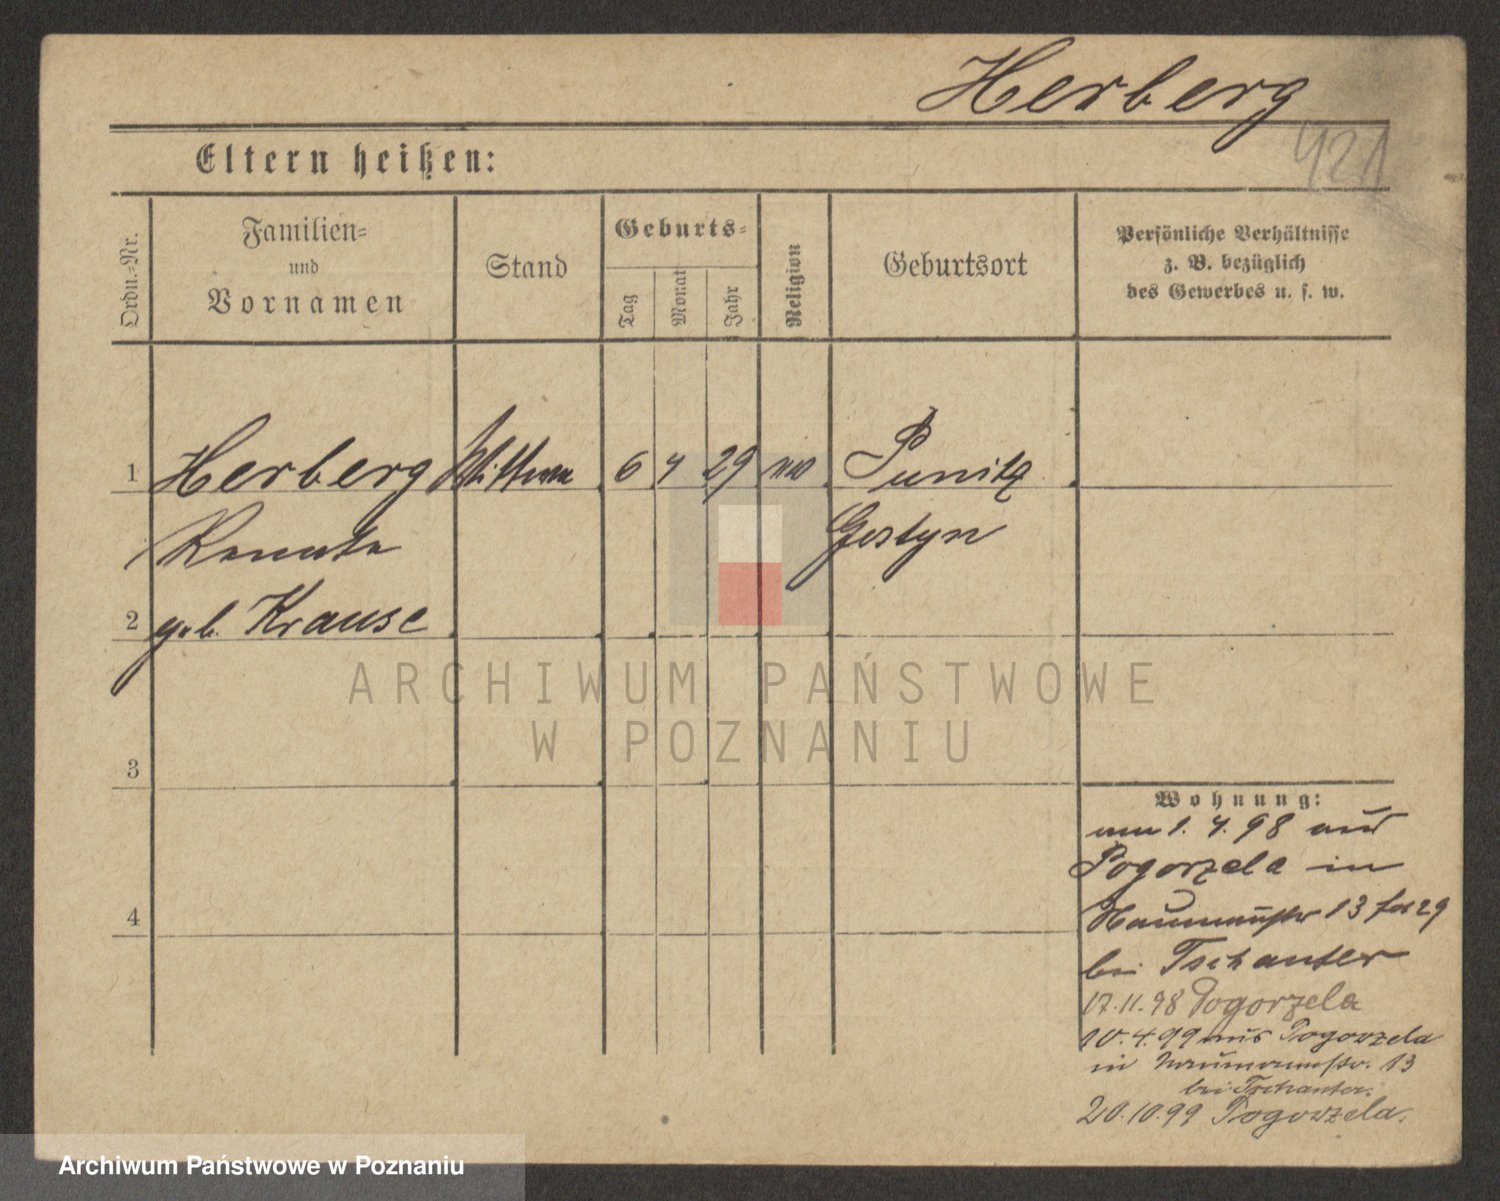 Herberg
421
Eltern heißen:
Ordn.-Nr.
Familien-
und
Vornamen
Stand
Geburts-
Tag
Monat
Jahr
Religion
Geburtsort
Persönliche Verhältnisse
z. B. bezüglich
des Gewerbes u. s. w.
1 Herberg Wittwe 6 4 29 ev Punitz
Renate Gostyn
2 geb. Krause
3
4
Wohnung:
am 1. 4. 98 aus
Pogorzela in
Naumannstr 13
bei Tschanter
17.11.98 Pogorzela
10.4.99 aus Pogorzela
in Naumannstr. 13
bei Tschanter.
20.10.99 Pogorzela.
ARCHIWUM PAŃSTWOWE
W POZNANIU
Archiwum Państwowe w Poznaniu